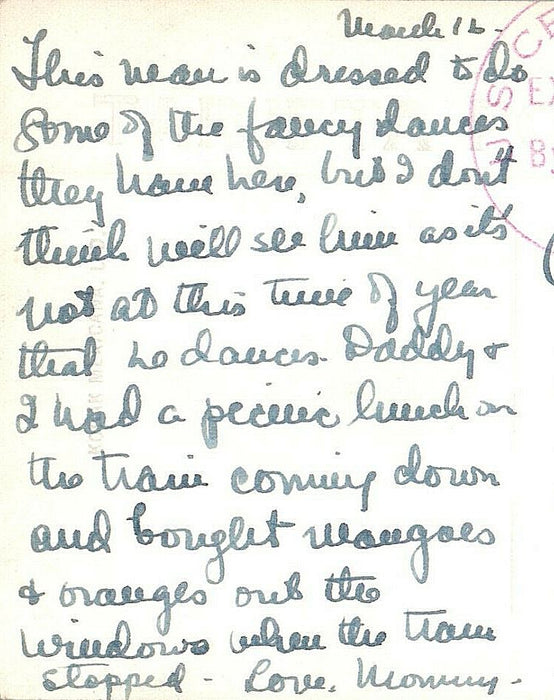 March 12-
This man is dressed to do
some of the fancy dances
they have here, but I don't
think we'll see him as it's
not at this time of year
that he dances. Daddy &
I had a picnic lunch on
the train coming down
and bought mangoes
& oranges out the
windows when the train
stopped - Love, Mommy -